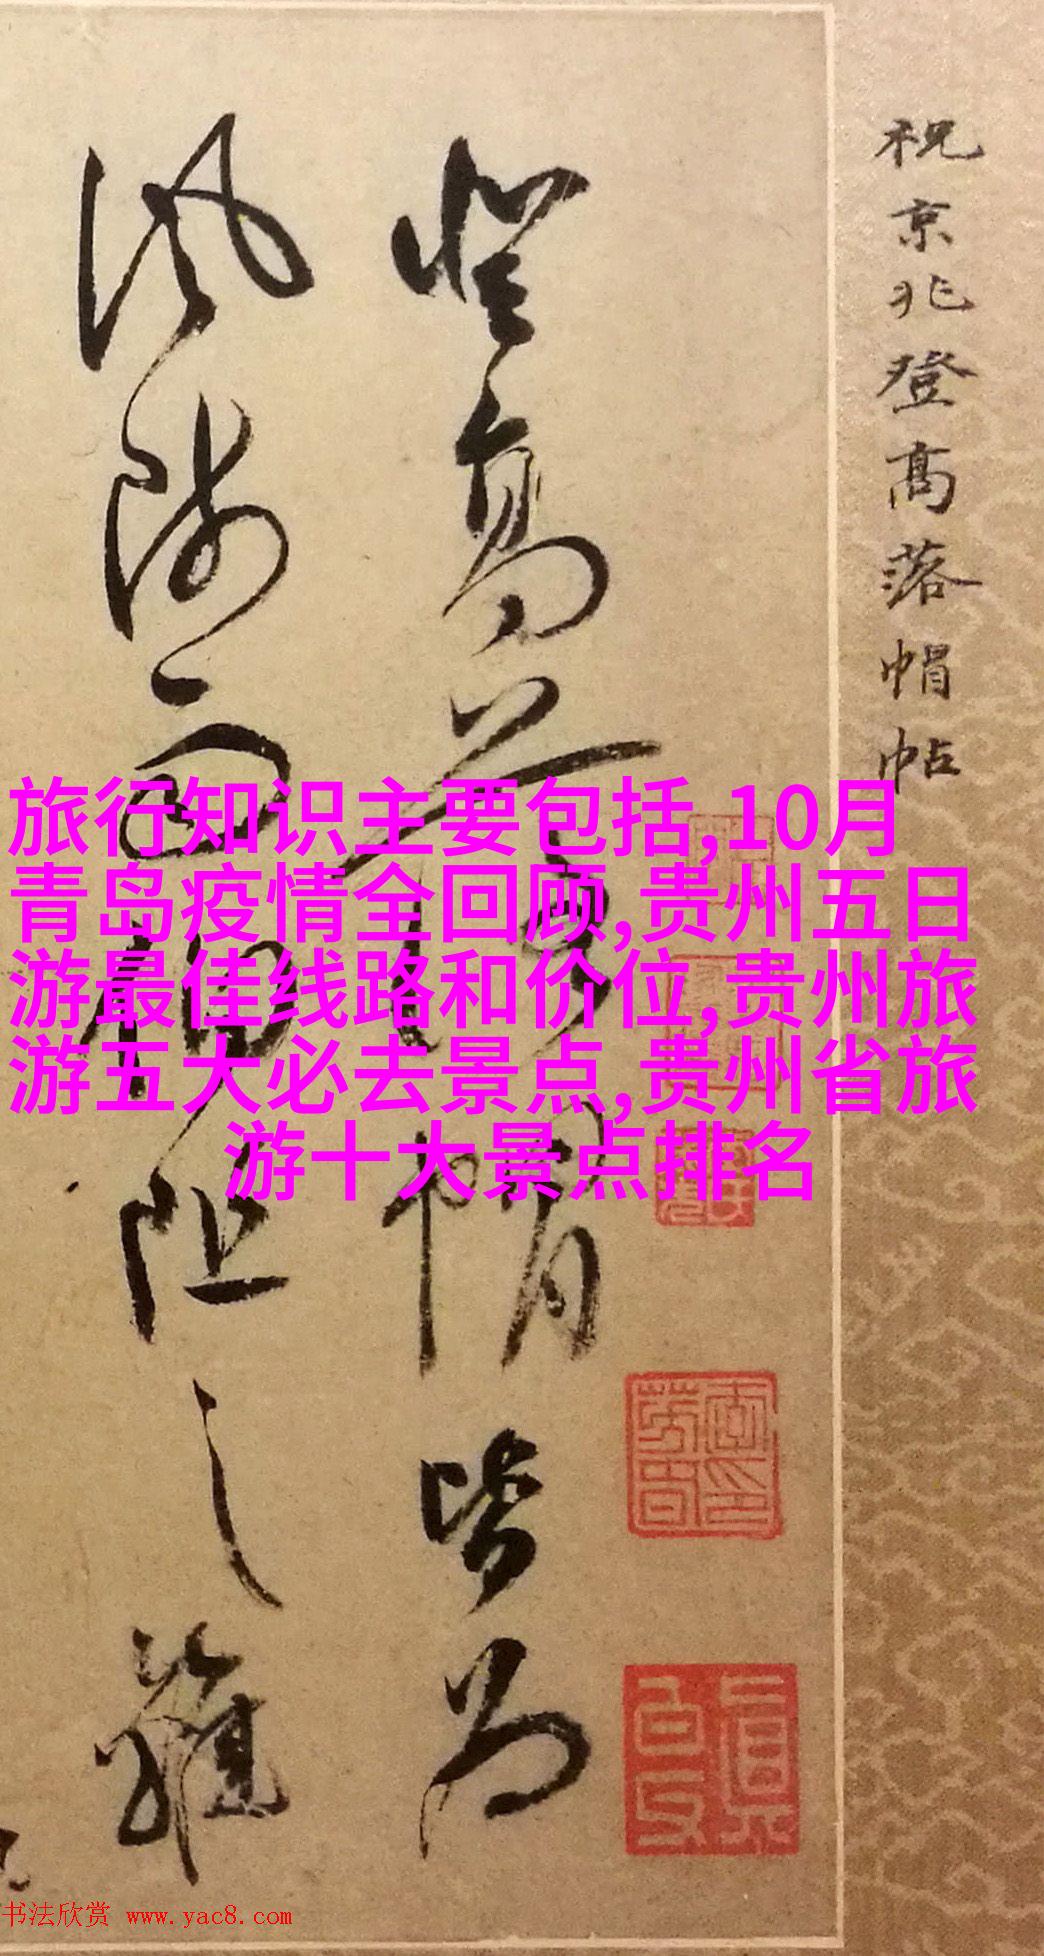 祝京兆登高落帽帖
登高落帽皆為
風師雨伯阻之雖
旅行知识主要包括,10月
青岛疫情全回顾,贵州五日
游最佳线路和价位,贵州旅
游五大必去景点,贵州省旅
游十大景点排名
书法欣赏 www.yac8.com